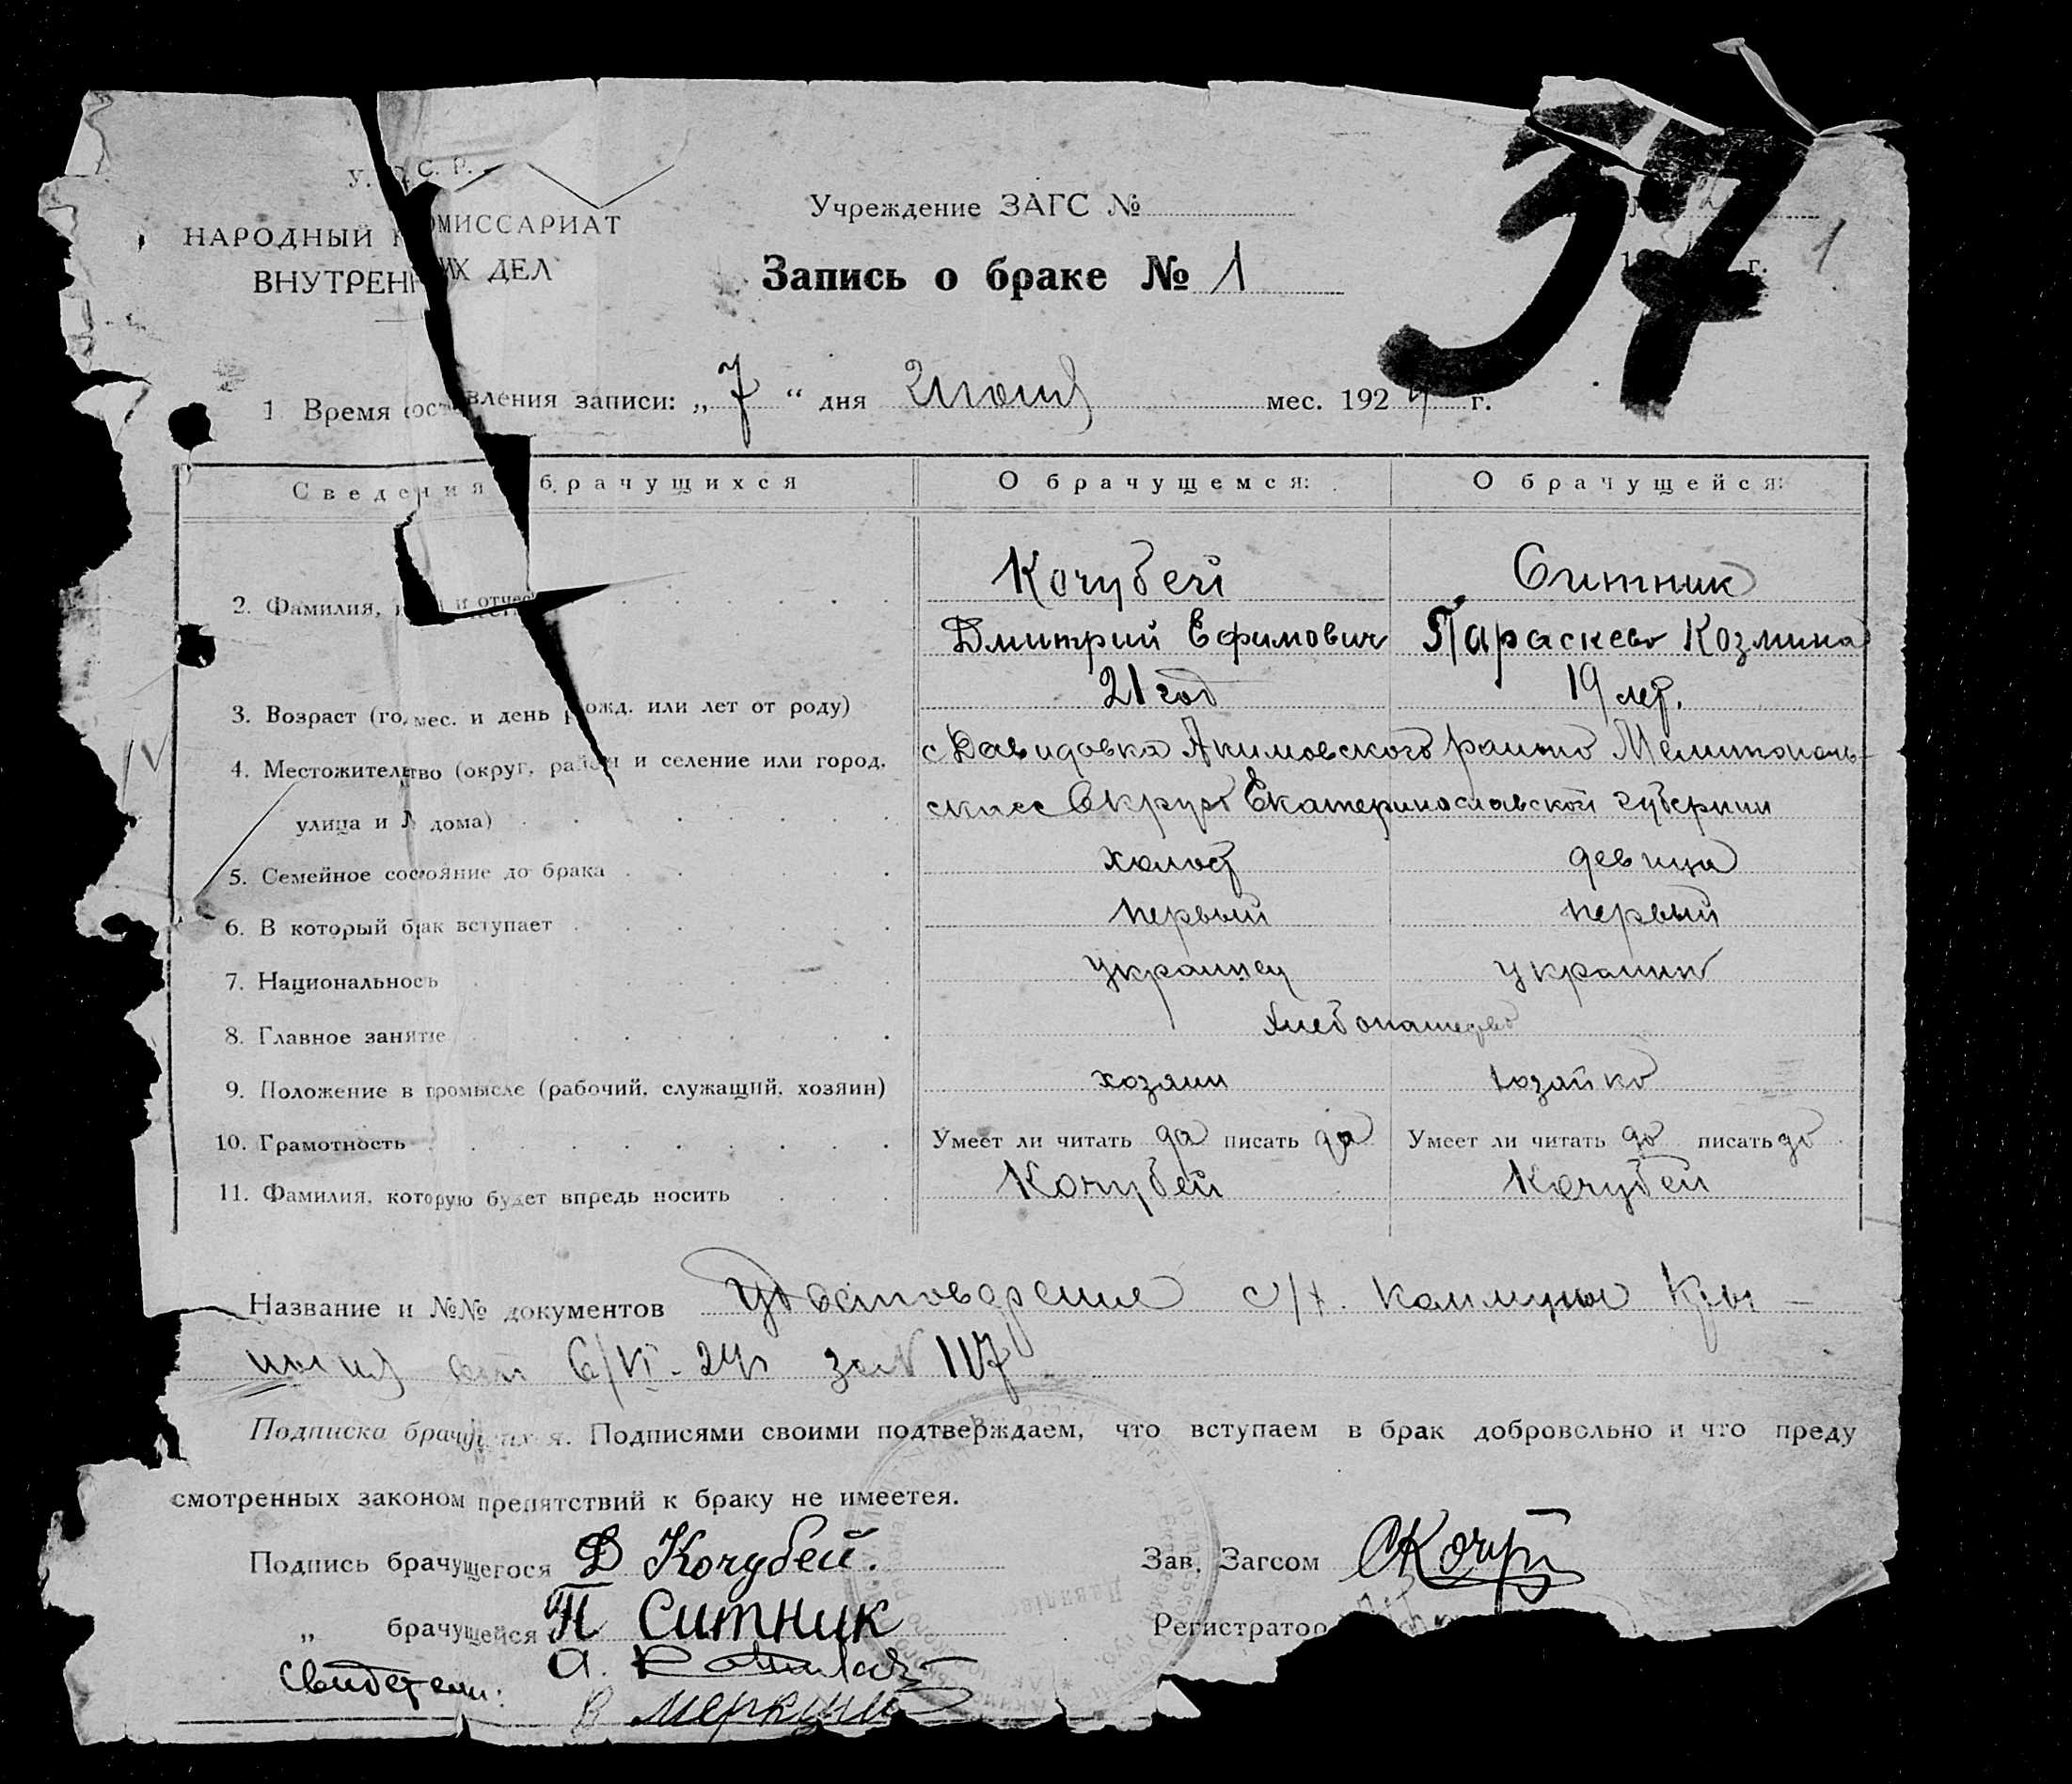 У. С. Р.
НАРОДНЫЙ КОМИССАРИАТ
ВНУТРЕННИХ ДЕЛ
Учреждение ЗАГС №
Запись о браке № 1
37
г.
1
1 Время составления записи: „ 7 “ дня Июня мес. 1924 г.
Сведения брачущихся О брачущемся: О брачущейся:
2. Фамилия, и отчес Кочубей Ситник
Дмитрий Ефимович Параскева Козмина
3. Возраст (го, мес. и день рожд. или лет от роду) 21 год 19 лет.
4. Местожительтво (округ, район и селение или город, с Давидовка Акимовского района Мелитополь-
улица и № дома) Округа Екатеринославской губернии
5. Семейное состояние до брака холост девица
6. В который брак вступает первый первый
7. Национальнось Украинец Украинка
8. Главное занятие Хлебопашество
9. Положение в промысле (рабочий, служащий, хозяин) хозяин хозайка
10. Грамотность Умеет ли читать да писать да Умеет ли читать да писать да
11. Фамилия, которую будет впредь носить Кочубей Кочубей
Название и №№ документов Удостоверение с/х. коммуны
от 6/VI-24 г за № 117
Подписка брачущихся. Подписями своими подтверждаем, что вступаем в брак добровольно и что преду
смотренных законом препятствий к браку не имеетея.
Подпись брачущегося Д Кочубей. Зав. Загсом
„ брачущейся П Ситник Регистратор
Свидетели: А.
В Меркуш